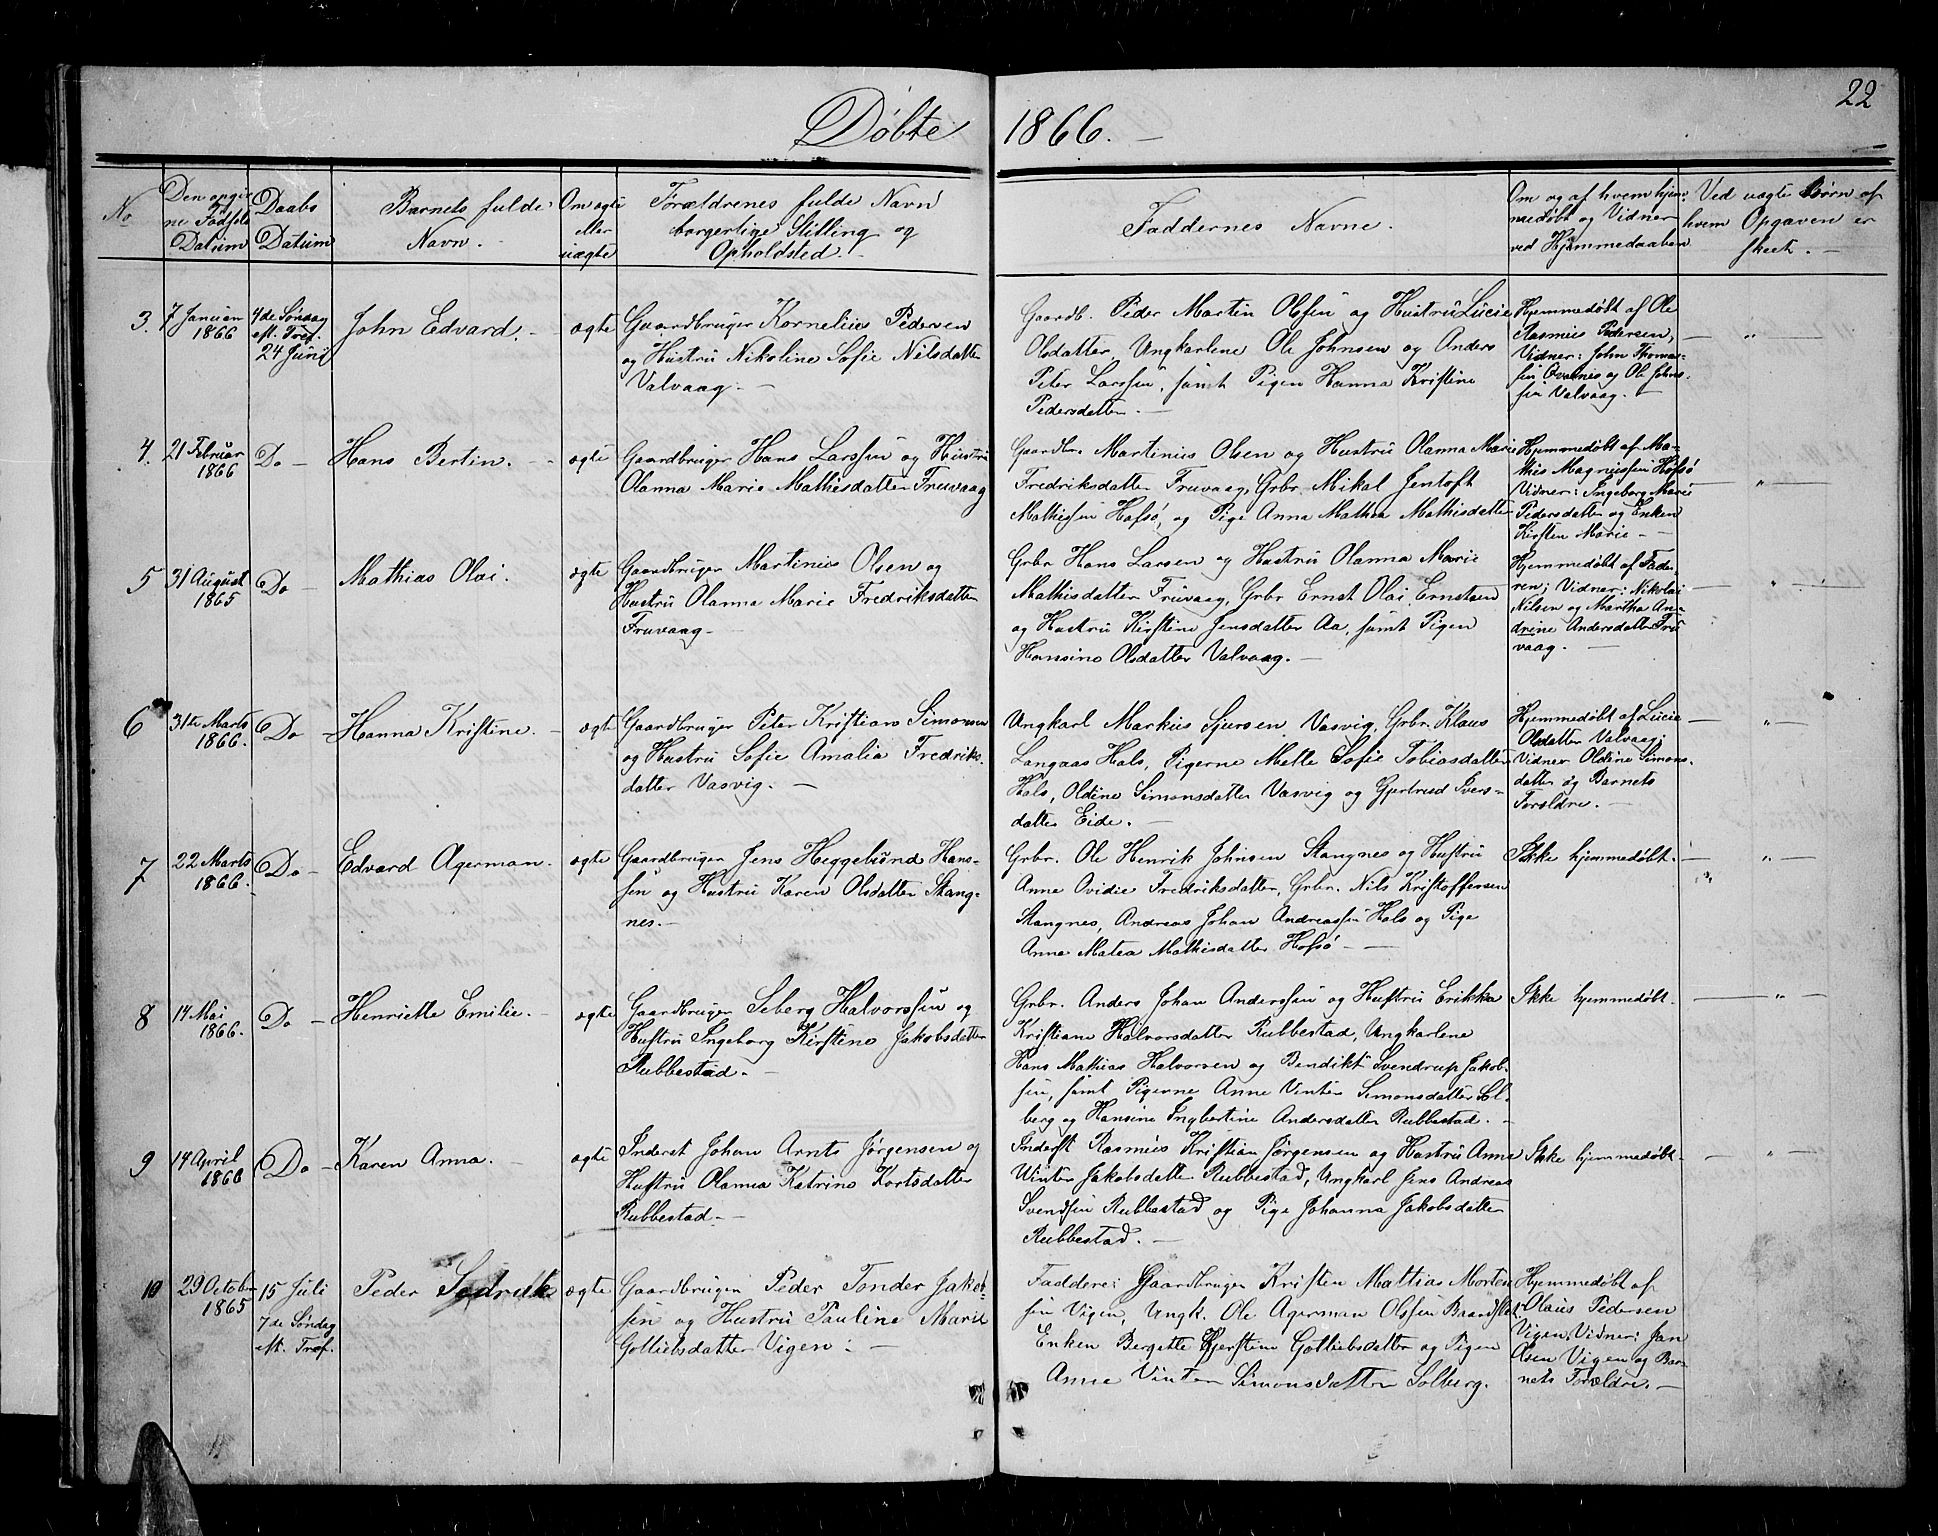 22
Døbte 1866. —
No
Den opgiv
ne Fødsels
Datum
Daabs
Datum
Barnets fulde
Navn. —
Om ægte
eller
uægte
Forældrenes fulde Navn
borgerlige Stilling og
Opholdsted. —
Faddernes Navne.
Om og af hvem hjem
medøbt og Vidner
ved Hjemmedaaben
Ved uægte Børn af
hvem Opgaven er
skeet. —
3.
7 Januar
1866
4de Søndag
eft. Tref.
24 Juni
John Edvard. —
ægte
Gaardbruger Kornelius Pedersen
og Hustru Nikoline Sofie Nilsdatter
Valvaag. —
Gaardb. Peder Martin Olsen og Hustru Lucie
Olsdatter, Ungkarlene Ole Johnsen og Anders
Peter Larssen, samt Pigen Hanna Kristine
Pedersdatter. —
Hjemmedøbt af Ole
Rasmus Pedersen,
Vidner: John Thomas-
sen Qvalnes og Ole Johns-
sen Valvaag. —
— " —
4.
21 Februar
1866
Do —
Hans Bertin. —
ægte
Gaardbruger Hans Larssen og Hustru
Olanna Marie Mathisdatter Fruvaag
Gaardbr. Martinus Olsen og Hustru Olanna Marie
Fredriksdatter Fruvaag, Grbr. Mikal Jentoft
Mathissen Hofsø, og Pige Anna Mathea Mathisdatter
Hjemmedøbt af Ma-
this Magnussen Hofsø
Vidner: Ingeborg Marie
Pedersdatter og Enken
Kirsten Marie —
— " —
5
31 August
1865
Do —
Mathias Olai.
ægte
Gaardbruger Martinus Olsen og
Hustru Olanna Marie Fredriksdatter
Fruvaag —
Grbr Hans Larsen og Hustru Olanna Marie
Mathisdatter Fruvaag, Grbr Ernst Olai Ernstsen
og Hustru Kirstine Jensdatter Aa, samt Pigen
Hansine Olsdatter Valvaag. —
Hjemmedøbt af Fade-
ren; Vidner: Nikolai
Nilsen og Martha An-
drine Andersdatter Fru
vaag. —
— " —
6
31te Marts
1866.
Do —
Hanna Kristine. —
ægte
Gaardbruger Peter Kristian Simonsen
og Hustru Sofie Amalia Fredriks-
datter Vasvig. —
Ungkarl Markus Sjursen Vasvig, Grbr. Klaus
Langaas Hals, Pigerne Mette Sofie Tobiasdatter
Hals, Oldine Simonsdatter Vasvig og Gjertrud Svers-
datter Eide. —
Hjemmedøbt af Lucie
Olsdatter Valvaag;
Vidner Oldine Simons-
datter og Barnets
Forældre. —
— " —
7
22 Marts
1866.
Do —
Edvard Agerman.
ægte
Gaardbruger Jens Heggelund Hans-
sen og Hustru Karen Olsdatter Stang-
nes. —
Grbr. Ole Henrik Johnsen Stangnes og Hustru
Anne Ovidie Fredriksdatter, Grbr. Nils Kristoffersen
Stangnes, Andreas Johan Andreassen Hals og Pige
Anna Matea Mathisdatter Hofsø —
Ikke hjemmedøbt.
— " —
8
14 Mai
1866.
Do —
Henriette Emilie. —
ægte
Gaardbruger Seberg Halvorssen og
Hustru Ingeborg Kirstine Jakobsdatter
Rubbestad. —
Grbr. Anders Johan Anderssen og Hustru Erikka
Kristiane Halvorsdatter Rubbestad, Ungkarlene
Hans Mathias Halvorsen og Bendikt Svendrup Jakob-
sen, samt Pigerne Anne Vinter Simonsdatter Sol-
berg og Hansine Ingbertine Andersdatter Rubbestad. —
Ikke hjemmedøbt.
— " —
9
14 April
1866
Do —
Karen Anna.
ægte
Inderst Johan Arnts Jørgensen og
Hustru Olamea Katrine Kortsdatter
Rubbestad. —
Inderst Rasmus Kristian Jørgensen og Hustru Anna
Winter Jakobsdatter Rubbestad, Ungkarl Jens Andreas
Svendsen Rubbestad og Pige Johanna Jakobsdatter
Rubbestad. —
Ikke hjemmedøbt —
— " —
10
29 Octobr
1865
15 Juli
7de Søndag
eft. Tref.
Peder
ægte
Gaardbruger Peder Tonder Jakob-
sen og Hustru Pauline Marie
Gotliebsdatter Vigen. —
Faddere: Gaardbruger Kristen Mattias Morten
sen Vigen, Ungk. Ole Agerman Olssen
Enken Bergette Kjerstine Gotliebsdatter og Pigen
Anne Vinter Simonsdatter Solberg.
Hjemmedøbt af
Olaus Pedersen
Vigen, Vidner: Jan
Olsen Vigen og Bar-
nets Forældre. —